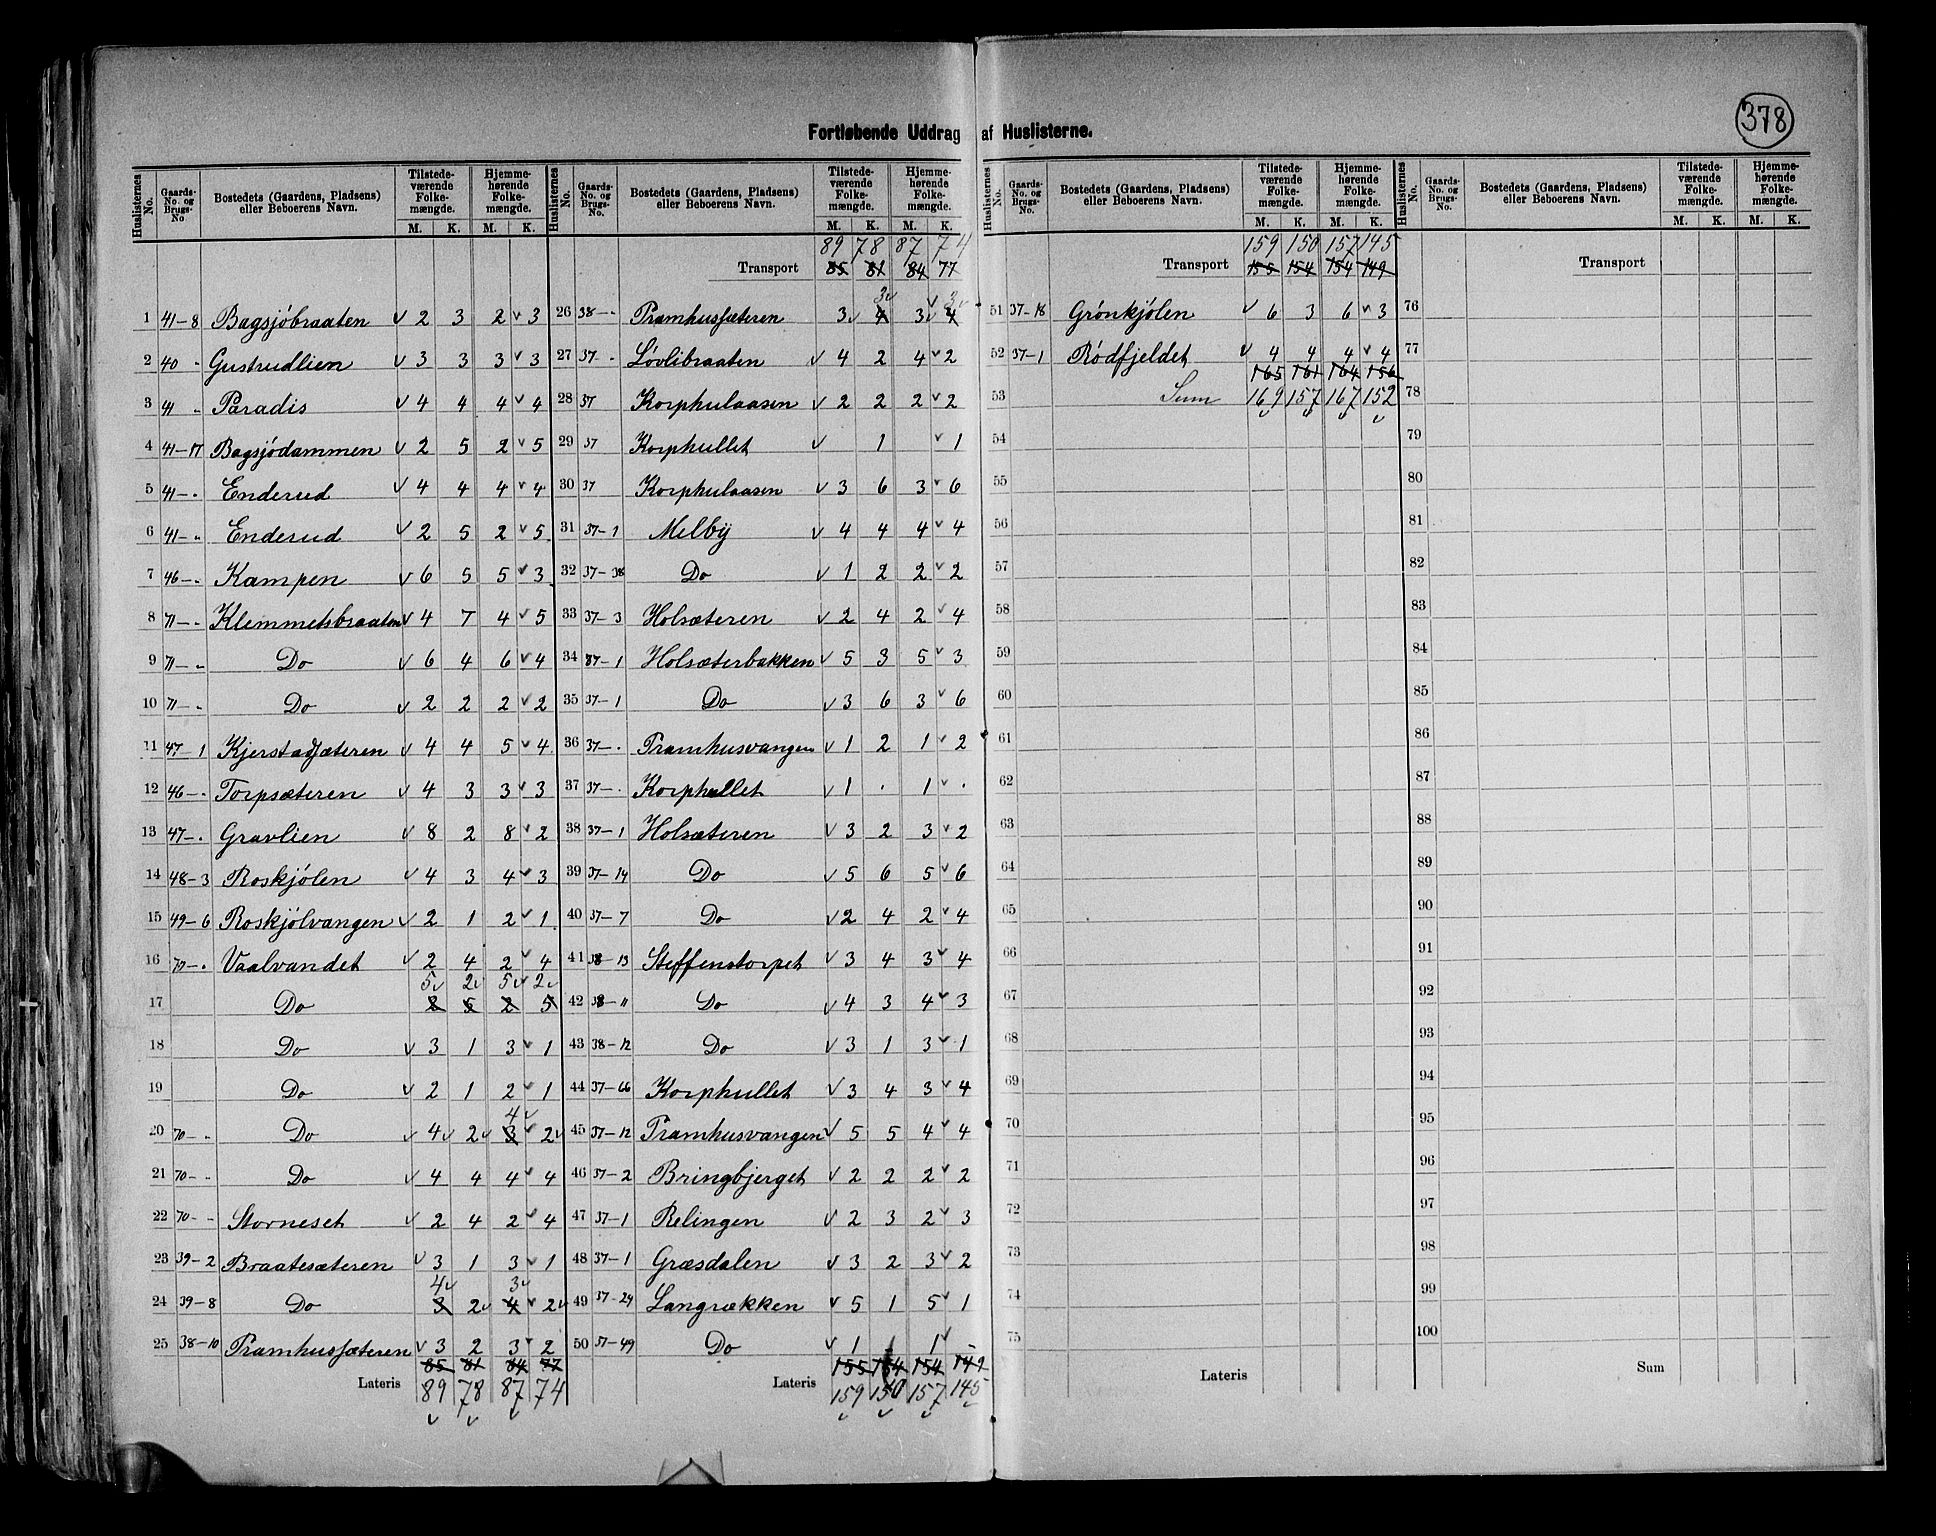 378
Fortløbende Uddrag af Huslisterne.
Huslisternes No. Gaards-No. og Brugs-No Bostedets (Gaardens, Pladsens) eller Beboerens Navn. Tilstedeværende Folkemængde. M. K. Hjemmehørende Folkemængde. M. K.
1 41-8 Bagsjøbraaten 2 3 2 3
2 40 " Gustrudlien 3 3 3 3
3 41 " Paradis 4 4 4 4
4 41-17 Bagsjødammen 2 5 2 5
5 41-" Enderud 4 4 4 4
6 41-" Enderud 2 5 2 5
7 46-" Kampen 6 5 5 3
8 71-" Klemmetsbraaten 4 7 4 5
9 71-" Do 6 4 6 4
10 71-" Do 2 2 2 2
11 47-1 Kjerstadsæteren 4 4 5 4
12 46-" Torpsæteren 4 3 3 3
13 47-" Gravlien 8 2 8 2
14 48-3 Roskjølen 4 3 4 3
15 49-6 Roskjølvangen 2 1 2 1
16 70-" Vaalvandet 2 4 2 4
5 2 5 2
17 Do 2 5 2 5
18 Do 3 1 3 1
19 Do 2 1 2 1
4
20 70-" Do 4 2 3 2
21 70-" Do 4 4 4 4
22 70-" Storneset 2 4 2 4
23 39-2 Braatesæteren 3 1 3 1
4 3
24 39-8 Do 3 2 4 2
25 38-10 Pramhussæteren 3 2 3 2
85 81 84 77
Lateris 89 78 87 74
Huslisternes No. Gaards-No. og Brugs-No. Bostedets (Gaardens, Pladsens) eller Beboerens Navn. Tilstedeværende Folkemængde. M. K. Hjemmehørende Folkemængde. M. K.
89 78 87 74
Transport 85 81 84 77
3 3
26 38-" Pramhussæteren 3 4 3 4
27 37-" Løvlibraaten 4 2 4 2
28 37 Korphulaasen 2 2 2 2
29 37 Korphullet 1 1
30 37 Korphulaasen 3 6 3 6
31 37-1 Melby 4 4 4 4
32 37-38 Do 1 2 2 2
33 37-3 Holsæteren 2 4 2 4
34 37-1 Holsæterbakken 5 3 5 3
35 37-1 Do 3 6 3 6
36 37-" Pramhusvangen 1 2 1 2
37 37-" Korphullet 1 . 1 .
38 37-1 Holsæteren 3 2 3 2
39 37-14 Do 5 6 5 6
40 37-7 Do 2 4 2 4
41 38-13 Steffenstorpet 3 4 3 4
42 38-11 Do 4 3 4 3
43 38-12 Do 3 1 3 1
44 37-66 Korphullet 3 4 3 4
45 37-12 Pramhusvangen 5 5 4 4
46 37-2 Bringbjerget 2 2 2 2
47 37-1 Relingen 2 3 2 3
48 37-1 Græsdalen 3 2 3 2
49 37-24 Langrækken 5 1 5 1
50 37-49 Do 1 1 -
155 154 154 149
Lateris 159 150 157 145
Huslisternes No. Gaards-No. og Brugs-No. Bostedets (Gaardens, Pladsens) eller Beboerens Navn. Tilstedeværende Folkemængde. M. K. Hjemmehørende Folkemængde. M. K.
159 150 157 145
Transport 155 154 154 149
51 37-18 Grønkjølen 6 3 6 3
52 37-1 Rødfjeldet 4 4 4 4
165 161 164 156
53 Sum 169 157 167 152
54
55
56
57
58
59
60
61
62
63
64
65
66
67
68
69
70
71
72
73
74
75
Lateris
Huslisternes No. Gaards-No. og Brugs-No. Bostedets (Gaardens, Pladsens) eller Beboerens Navn. Tilstedeværende Folkemængde. M. K. Hjemmehørende Folkemængde. M. K.
Transport
76
77
78
79
80
81
82
83
84
85
86
87
88
89
90
91
92
93
94
95
96
97
98
99
100
Sum